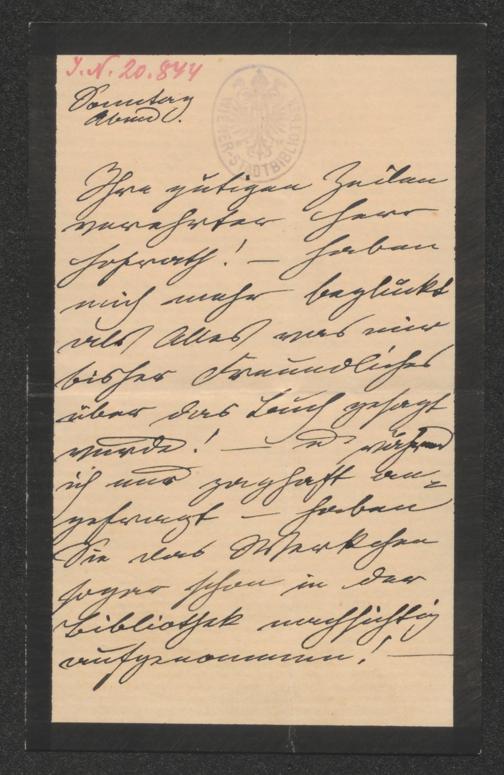 I.N. 20.844
WIENER-STADTBIBLIOTHEK
Sonntag
Abend.
Ihre gütigen Zeilen
verehrter Herr
Hofrath! – haben
mich mehr beglückt
als Alles was mir
bisher Freundliches
über das Buch gesagt
wurde! – u während
ich nur zaghaft an=
gefragt – haben
Sie das Werkchen
sogar schon in der
Bibliothek nachsichtig
aufgenommen! –